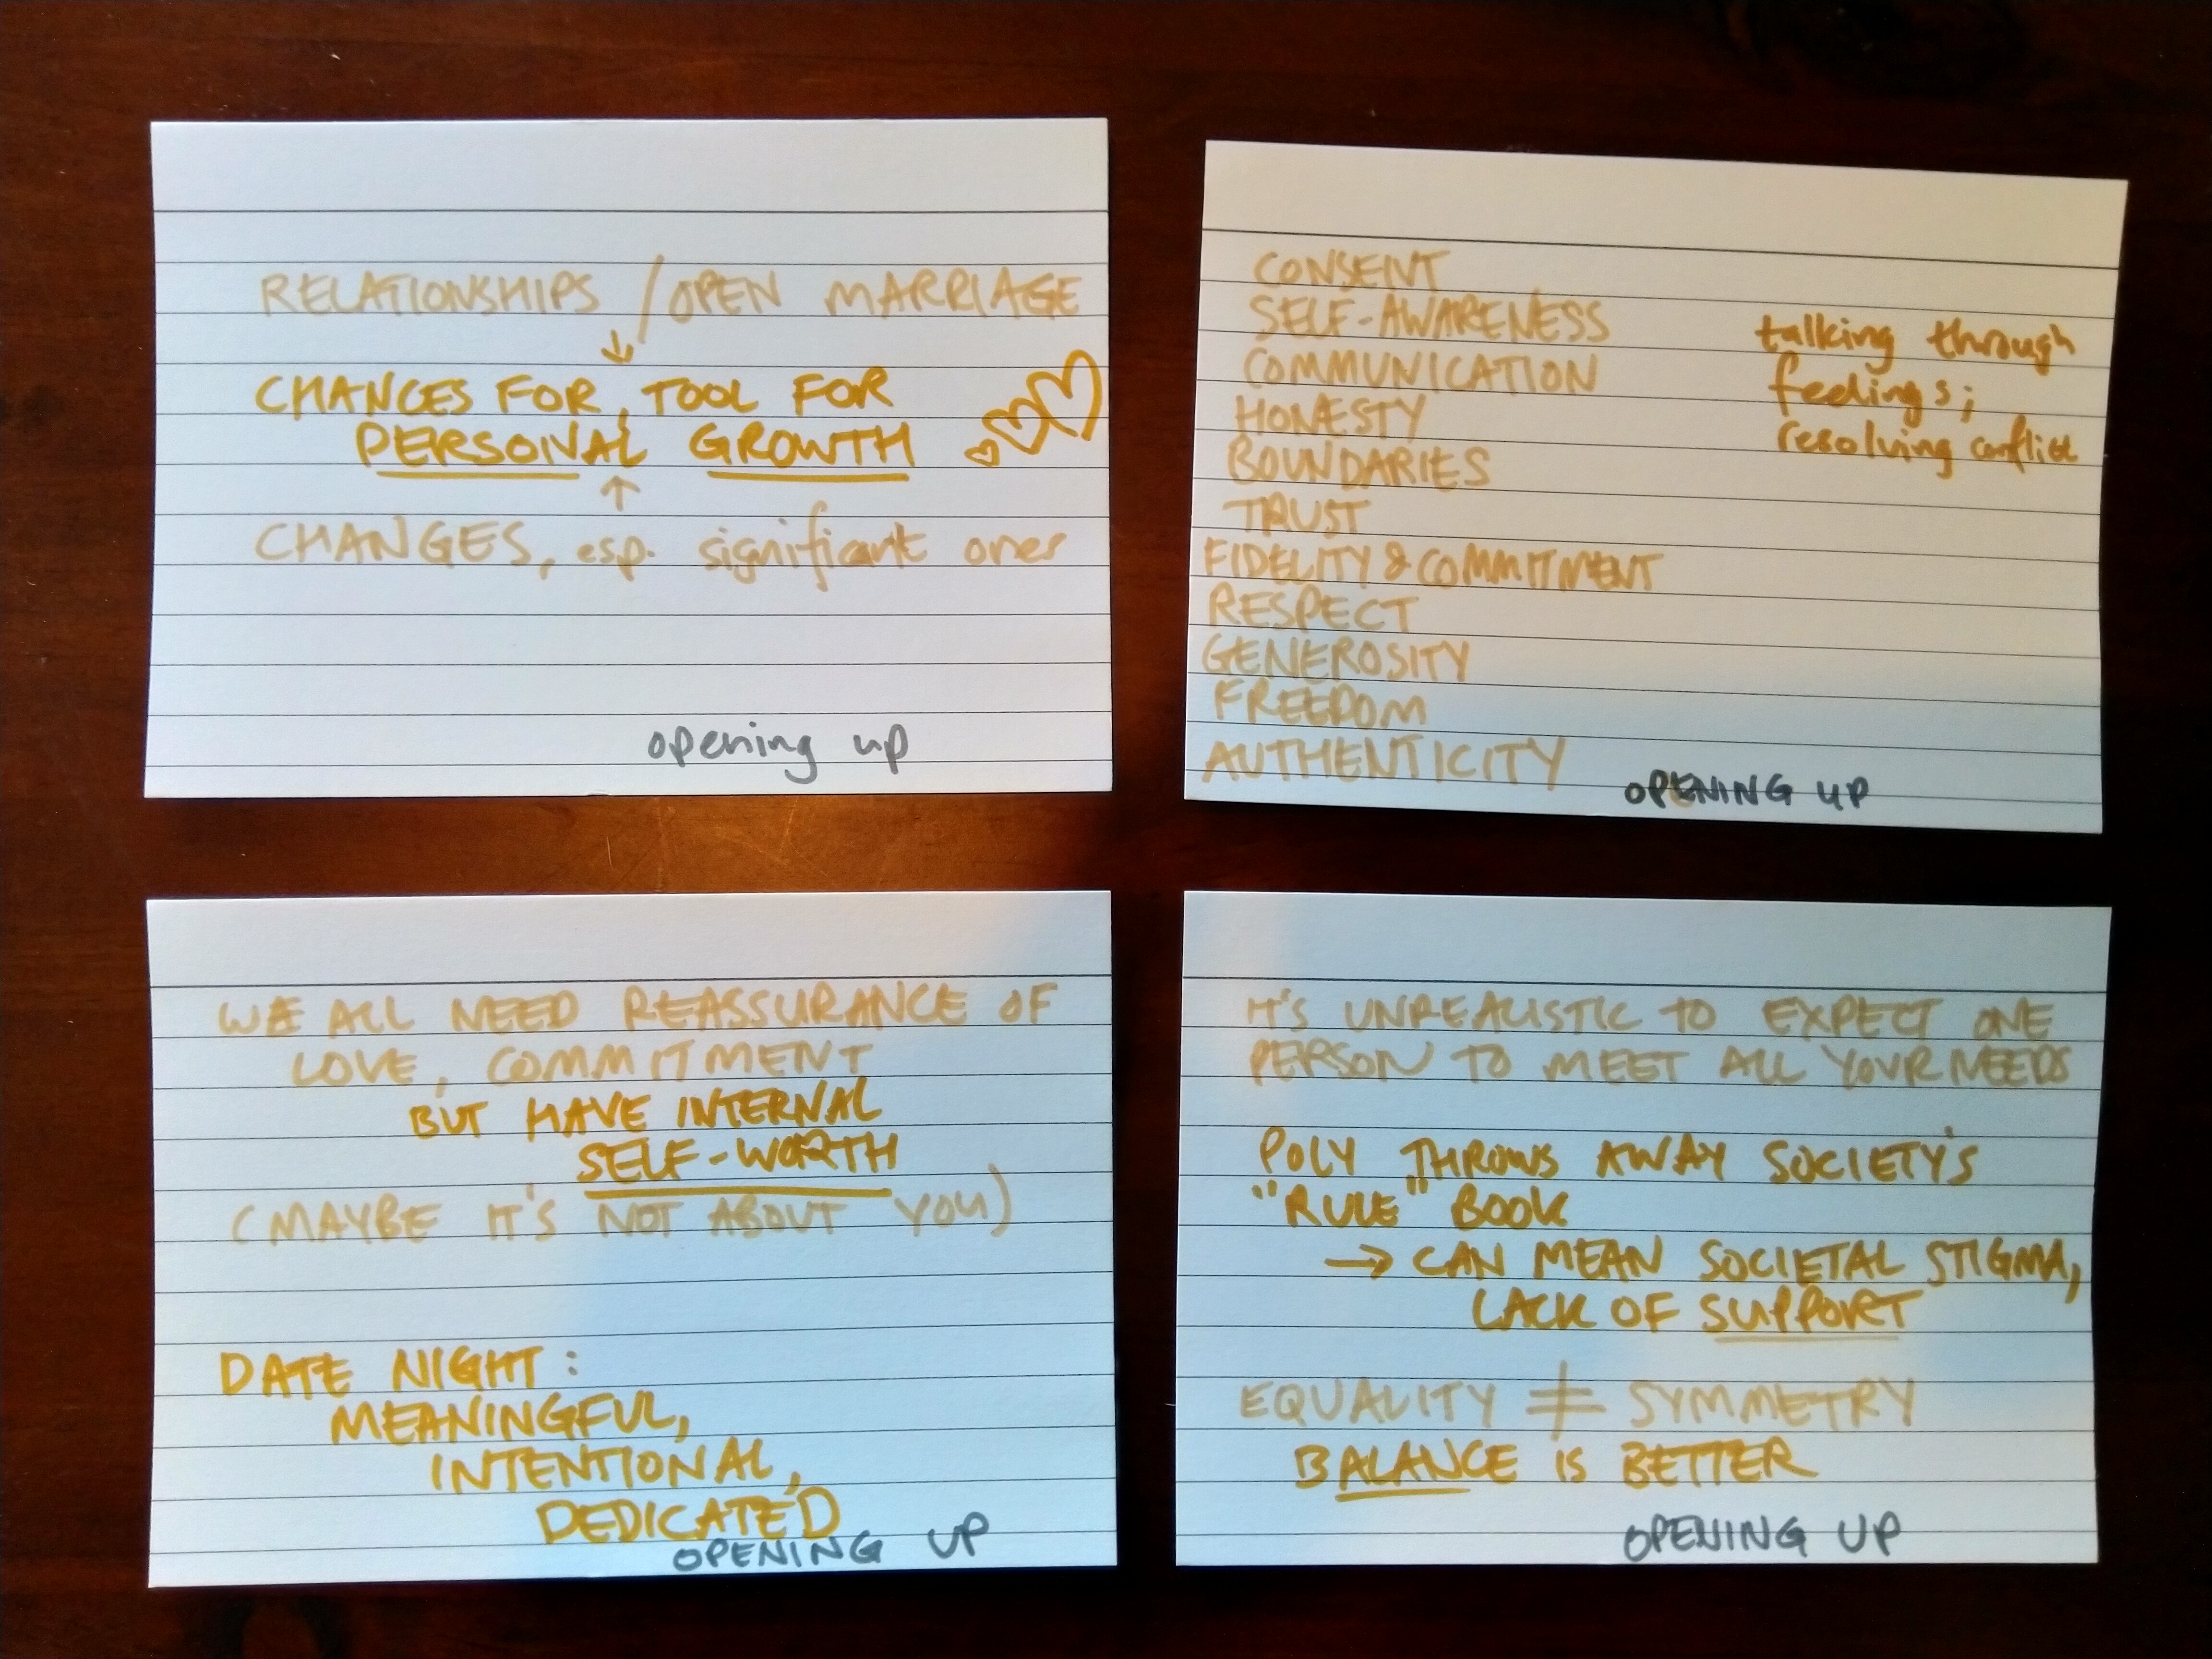 RELATIONSHIPS / OPEN MARRIAGE
↓
CHANCES FOR, TOOL FOR
PERSONAL GROWTH
↑
CHANGES, esp. significant ones
opening up
CONSENT
SELF-AWARENESS
COMMUNICATION
HONESTY
BOUNDARIES
TRUST
FIDELITY & COMMITMENT
RESPECT
GENEROSITY
FREEDOM
AUTHENTICITY
talking through
feelings;
resolving conflict
OPENING UP
WE ALL NEED REASSURANCE OF
LOVE, COMMITMENT
BUT HAVE INTERNAL
SELF-WORTH
(MAYBE IT'S NOT ABOUT YOU)
DATE NIGHT:
MEANINGFUL,
INTENTIONAL,
DEDICATED
OPENING UP
IT'S UNREALISTIC TO EXPECT ONE
PERSON TO MEET ALL YOUR NEEDS
POLY THROWS AWAY SOCIETY'S
"RULE" BOOK
→ CAN MEAN SOCIETAL STIGMA,
LACK OF SUPPORT
EQUALITY ≠ SYMMETRY
BALANCE IS BETTER
OPENING UP